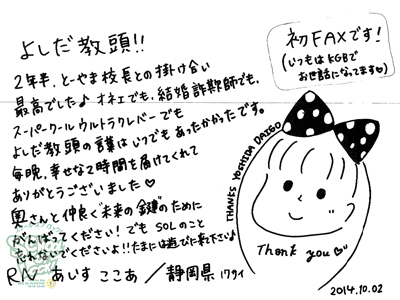 よしだ教頭!!
初FAXです!
(いつもはKGBで
お世話になってます♡)
2年半、とーやま校長との掛け合い
最高でした♪ オネエでも、結婚詐欺師でも、
スーパークールウルトラクレバーでも
よしだ教頭の言葉はいつでもあったかかったです。
毎晩、幸せな2時間を届けてくれて
ありがとうございました♡
奥さんと仲良く"未来の鍵"のために
がんばってください! でも SOLのこと
忘れないでくださいよ!! たまには遊びに来て下さい♪
RN あいす ここあ / 静岡県 17才
THANKS YOSHIDA DAIGO
Thank you♡
2014.10.02